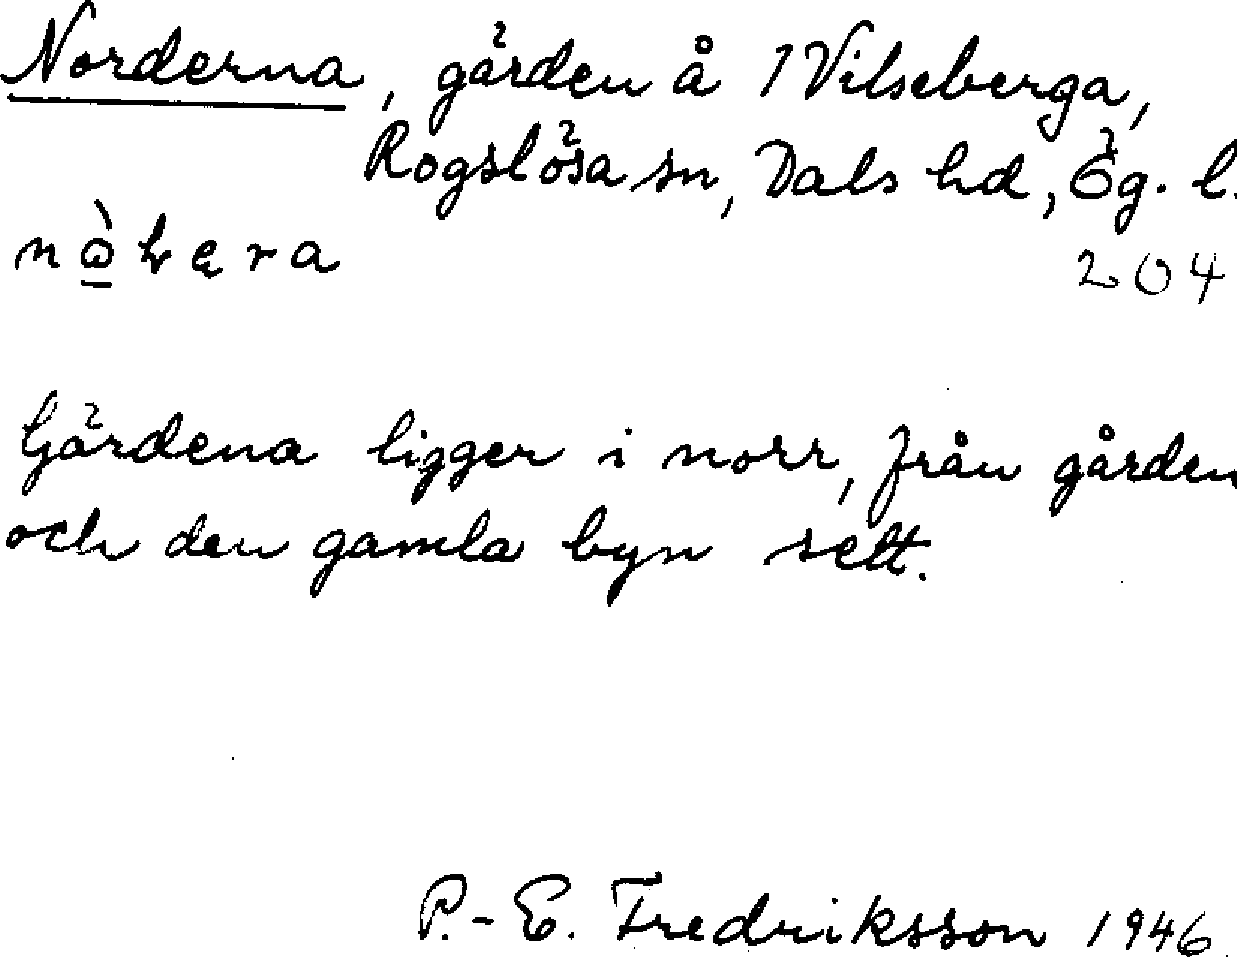 Norderna, gärden å 1 Vilseberga,
Rogslösa sn, Dals hd, Ög. l.
204
Gärdena ligger i norr, från gården
och den gamla byn sett.
P.-E. Fredriksson 1946.